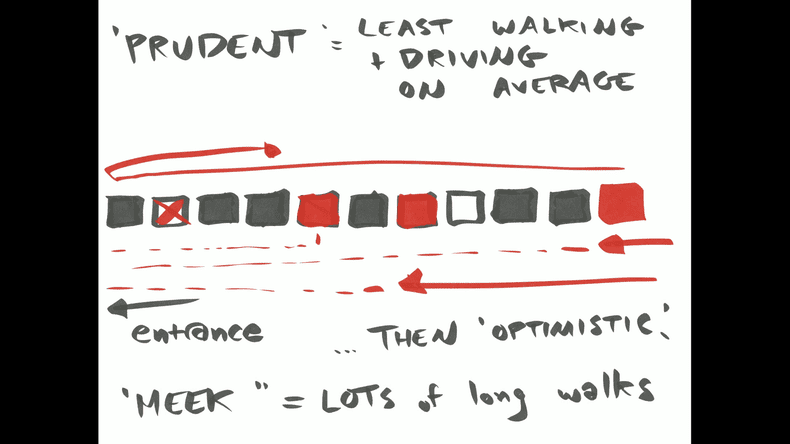 'PRUDENT' = LEAST WALKING
+ DRIVING
ON AVERAGE
entrance
... THEN 'OPTIMISTIC'.
'MEEK" = LOTS of long walks